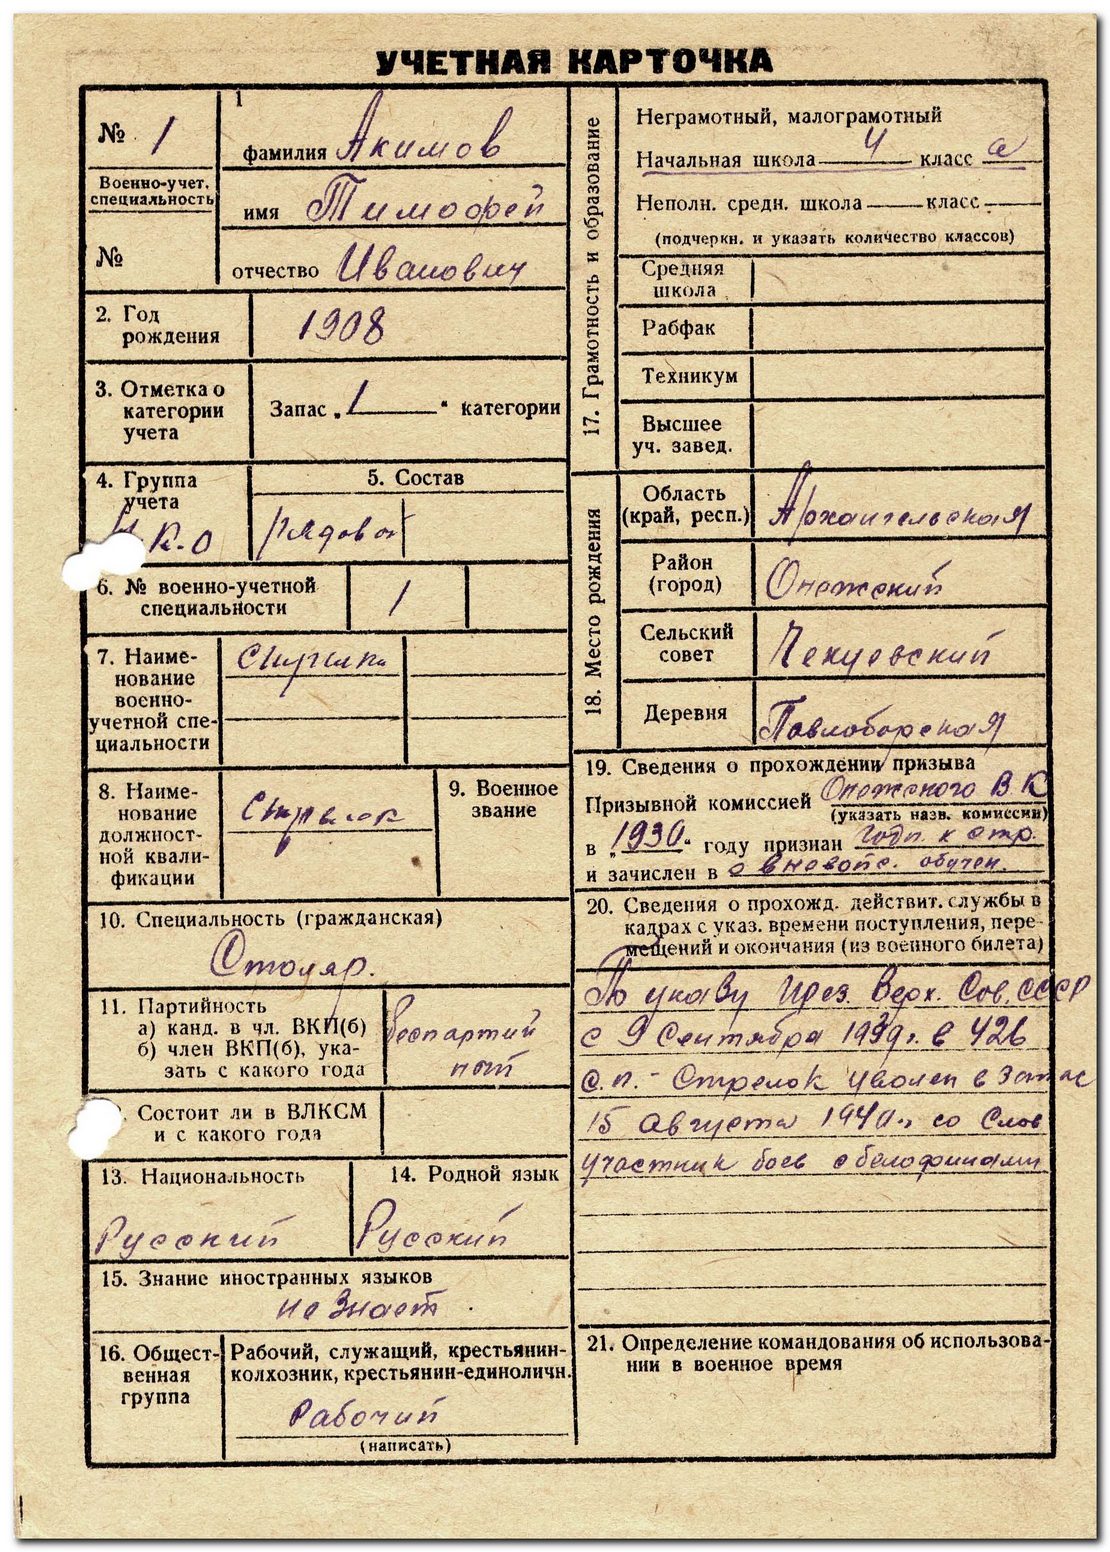 УЧЕТНАЯ КАРТОЧКА
№ 1
Военно-учет.
специальность
№
1
фамилия Акимов
имя Тимофей
отчество Иванович
2. Год
рождения
1908
3. Отметка о
категории
учета
Запас „1" категории
4. Группа
учета
Н.К.О
5. Состав
рядовой
6. № военно-учетной
специальности
1
7. Наиме-
нование
военно-
учетной спе-
циальности
8. Наиме-
нование
должност-
ной квали-
фикации
Стрелок
9. Военное
звание
10. Специальность (гражданская)
Столяр.
11. Партийность
а) канд. в чл. ВКП(б)
б) член ВКП(б), ука-
зать с какого года
беспартий
ный
Состоит ли в ВЛКСМ
и с какого года
13. Национальность
Русский
14. Родной язык
Русский
15. Знание иностранных языков
не знает.
16. Общест-
венная
группа
Рабочий, служащий, крестьянин-
колхозник, крестьянин-единоличн.
Рабочий
(написать)
17. Грамотность и образование
Неграмотный, малограмотный
Начальная школа 4 класс а
Неполн. средн. школа класс
(подчеркн. и указать количество классов)
Средняя
школа
Рабфак
Техникум
Высшее
уч. завед.
18. Место рождения
Область
(край, респ.)
Архангельская
Район
(город)
Онежский
Сельский
совет
Чекуевский
Деревня
Павлоборская
19. Сведения о прохождении призыва
Призывной комиссией Онежского В.К
(указать назв. комиссии)
в „1930" году признан годн. к стр.
и зачислен в обучен.
20. Сведения о прохожд. действит. службы в
кадрах с указ. времени поступления, пере-
мещений и окончания (из военного билета)
По указу През. Верх. Сов. СССР
с 9 Сентября 1939г. в 426
с.п. - Стрелок уволен в запас
15 августа 1940г. со слов
участник боев с белофинами
21. Определение командования об использова-
нии в военное время